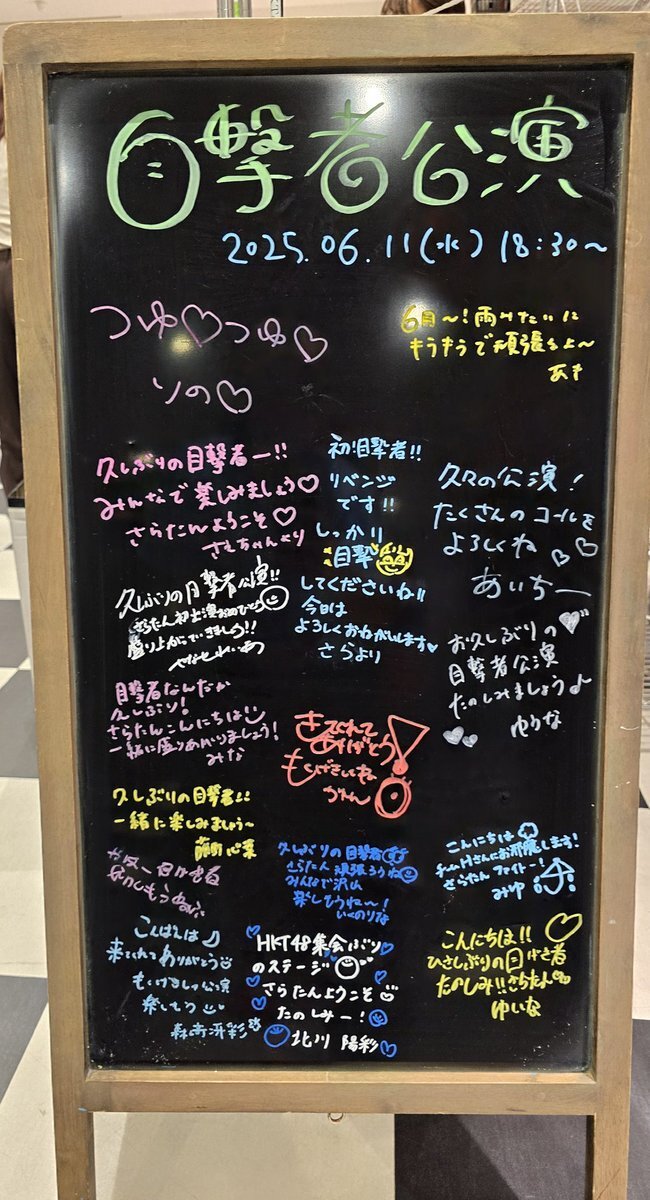 目撃者公演
2025.06.11(水) 18:30〜
つゆ♡つゆ♡
りの♡
6月〜!雨みたいに
キラキラで頑張るよ〜
あき
久しぶりの目撃者ー!!
みんなで楽しみましょう♡
さらたんようこそ♡
さえちゃんより
初!目撃者!!
リベンジ
です!!
しっかり
目撃
してくださいね!!
今日は
よろしくおねがいします♥
さらより
久々の公演!
たくさんのコールを
よろしくね
あいちー
久しぶりの目撃者公演!!
さらたん初出演おめでとう
盛り上がっていきましょう!!
お久しぶりの
目撃者公演
たのしみましょう♪
ゆりな
目撃者なんだか
久しぶり!
さらたんこんにちは
一緒に盛りあがりましょう!
みな
きてくれて
ありがとう!
もくげきしいね
かれん
久しぶりの目撃者!!
一緒に楽しみましょう〜
心菜
久しぶりの目撃者
さらたん頑張ろうね
みんなで沢山
楽しもうね〜!
いくのりな
こんにちは
チームHさんにお邪魔します!
さらたん ファイトー!
みゆ
こんばんは♪
来てくれてありがとう
もくげきしゃ公演
楽しもう
森﨑冴彩
HKT48集会ぶり
のステージ
さらたんようこそ
たのしみー!
北川 陽彩
こんにちは!!
ひさしぶりの目げき者
たのしみ!!さらたん
ゆいな